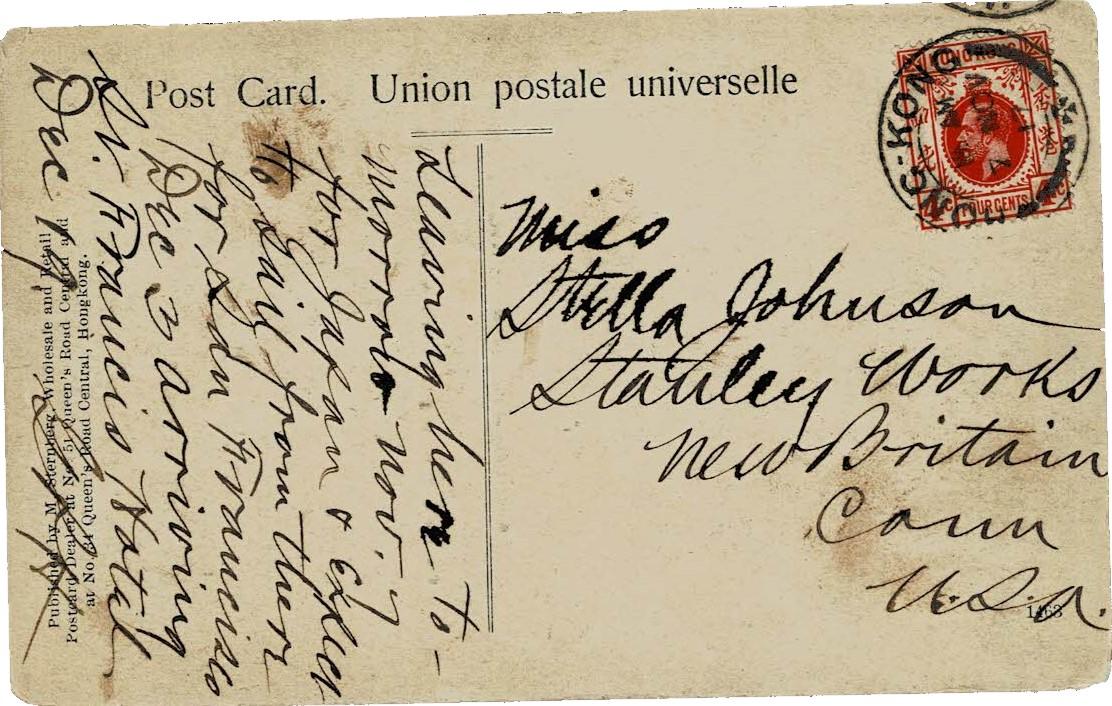 Post Card. Union postale universelle
HONG KONG
香港
FOUR CENTS
HONG-KONG
Miss
Stella Johnson
Stanley Works
New Britain
Conn
U.S.A.
1463
Leaving here to-
morrow Nov. 7
for Japan & expect
to sail from there
for San Francisco
Dec 3 arriving
St. Francis Hotel
Dec
Published by M. Sternberg, Wholesale and Retail
Postcard Dealer at No. 51 Queen's Road Central and
at No. 34 Queen's Road Central, Hongkong.